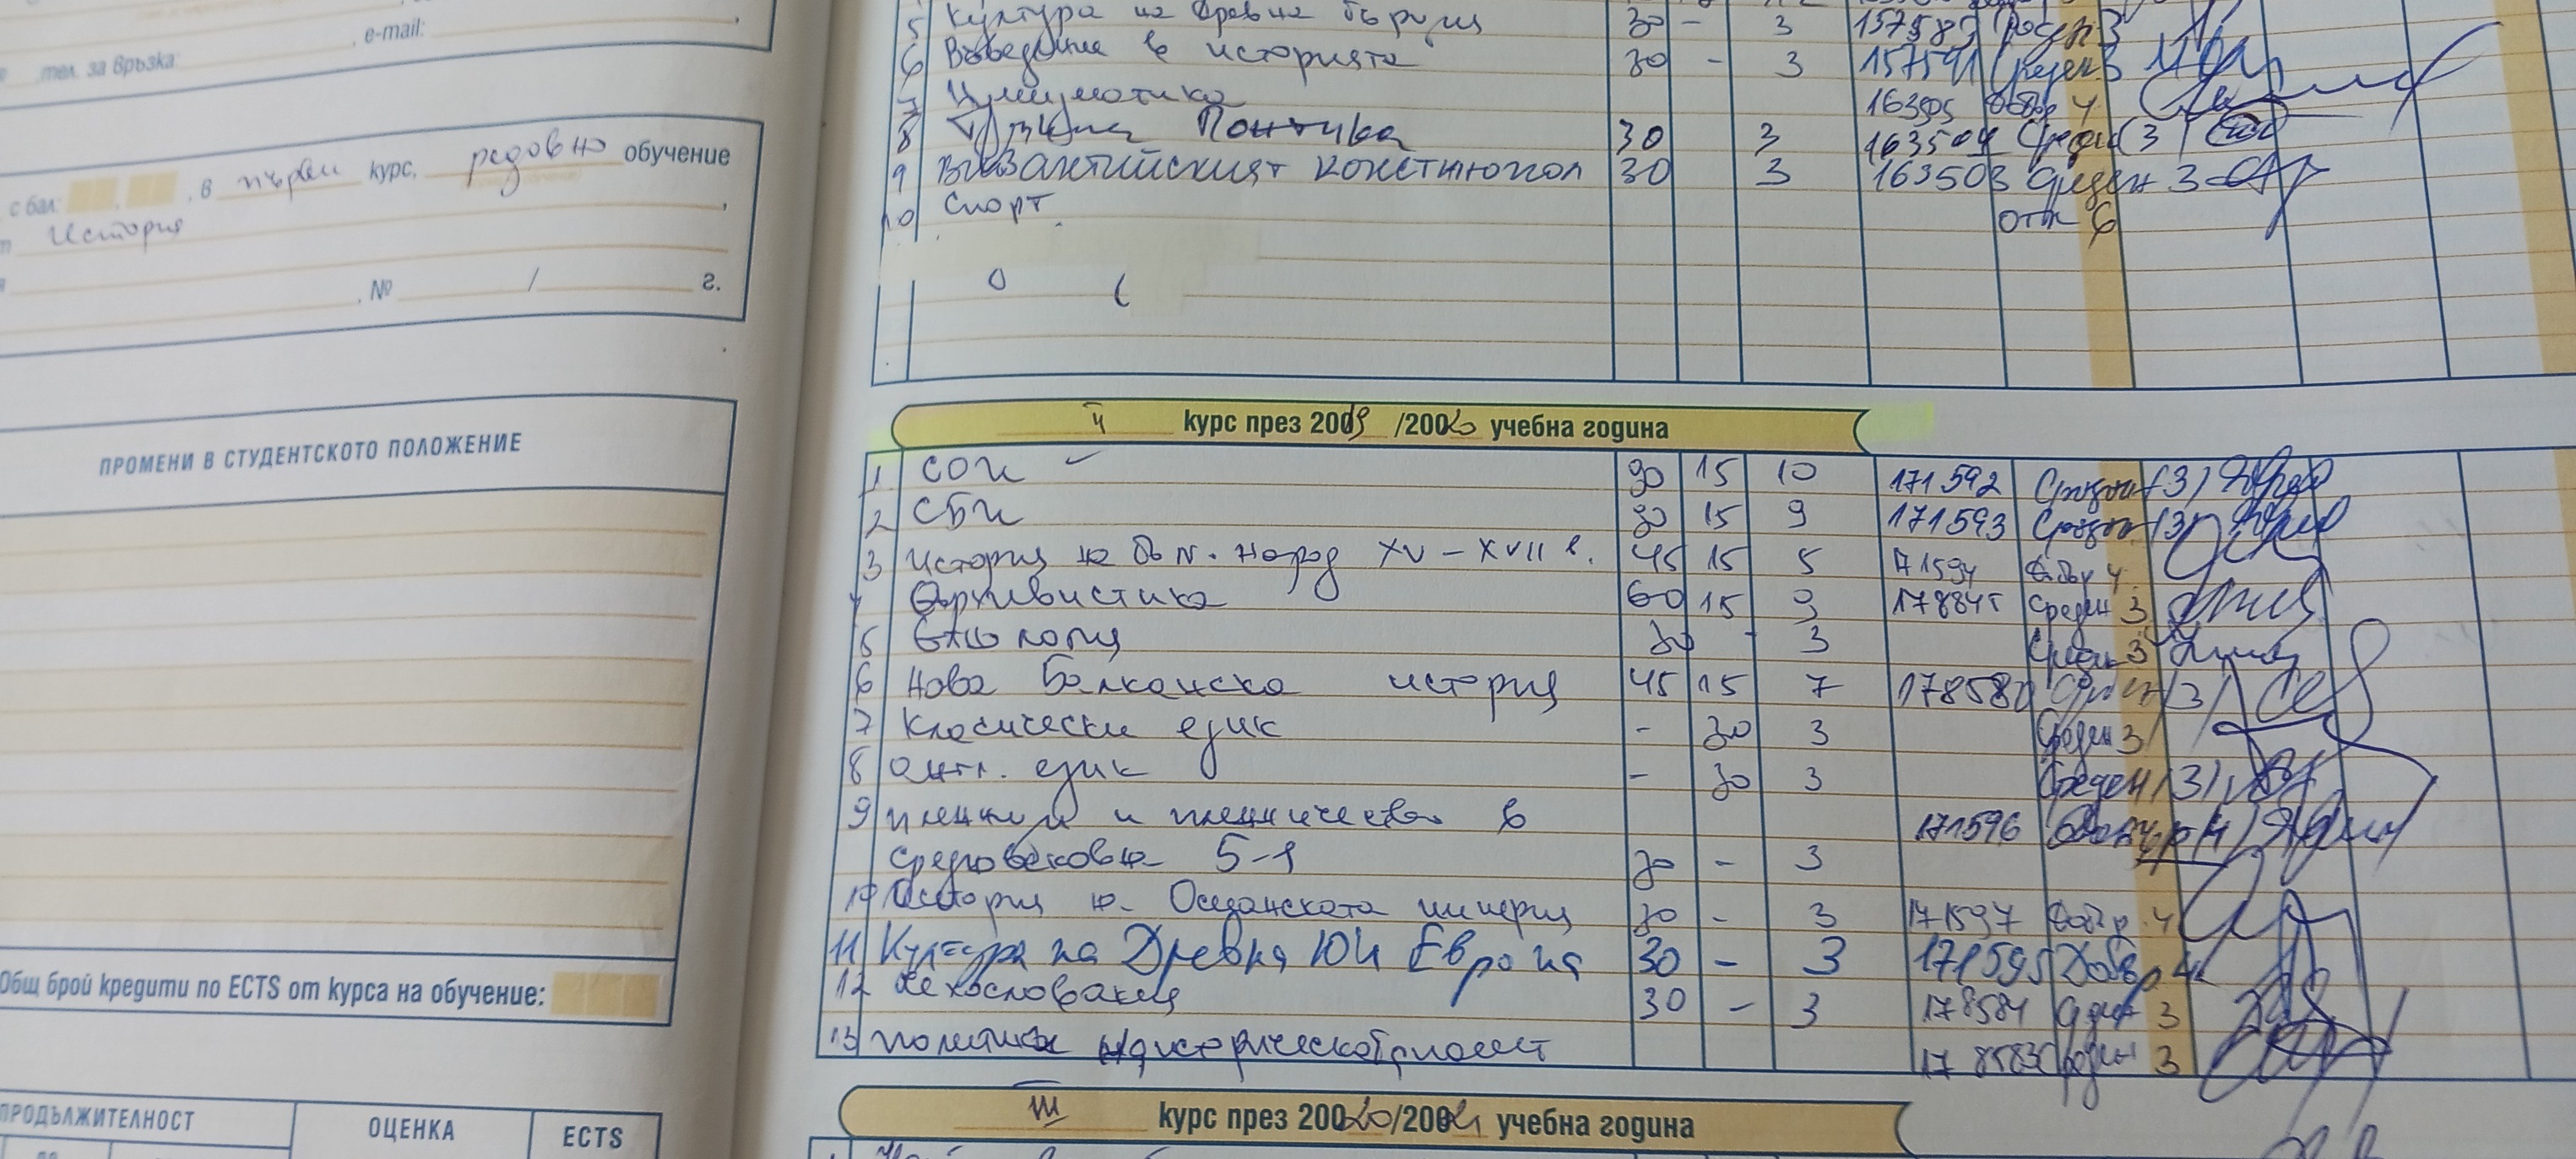 , e-mail:
тел. за връзка:
с бал: , в първи курс, редовно обучение
История
, № / г.
ПРОМЕНИ В СТУДЕНТСКОТО ПОЛОЖЕНИЕ
Общ брой кредити по ECTS от курса на обучение:
ПРОДЪЛЖИТЕЛНОСТ ОЦЕНКА ECTS
5 Култура на Древна 30 - 3 157585
6 Въведение в историята 30 - 3 157591 Среден 3
7 Нумизматика 163505 добър 4
8 Понтика 30 3 163504 Среден (3)
9 Византийският 30 3 163503 Среден 3
10 Спорт отл 6
II курс през 2009 /20020 учебна година
1 СОИ 90 15 10 171592 Среден (3)
2 СБИ 90 15 9 171593 Среден (3)
3 История на бълг. народ XV - XVII в. 45 15 5 171594 добър 4
4 Архивистика 60 15 9 178845 Среден 3
5 Етнология 30 - 3 Среден 3
6 Нова Балканска история 45 15 7 178580 Среден (3)
7 Класически език - 30 3 Среден 3
8 Англ. език - 30 3 Среден (3)
9 пленници и пленничество в 171596 Добър (4)
Средновековие 30 - 3
10 История на Османската империя 30 - 3 171597 добър 4
11 Култура на Древна ЮИ Европа 30 - 3 171595 Добър 4
12 Чехословакия 30 - 3 178584 Среден 3
13 178583 Среден 3
III курс през 20020/20021 учебна година